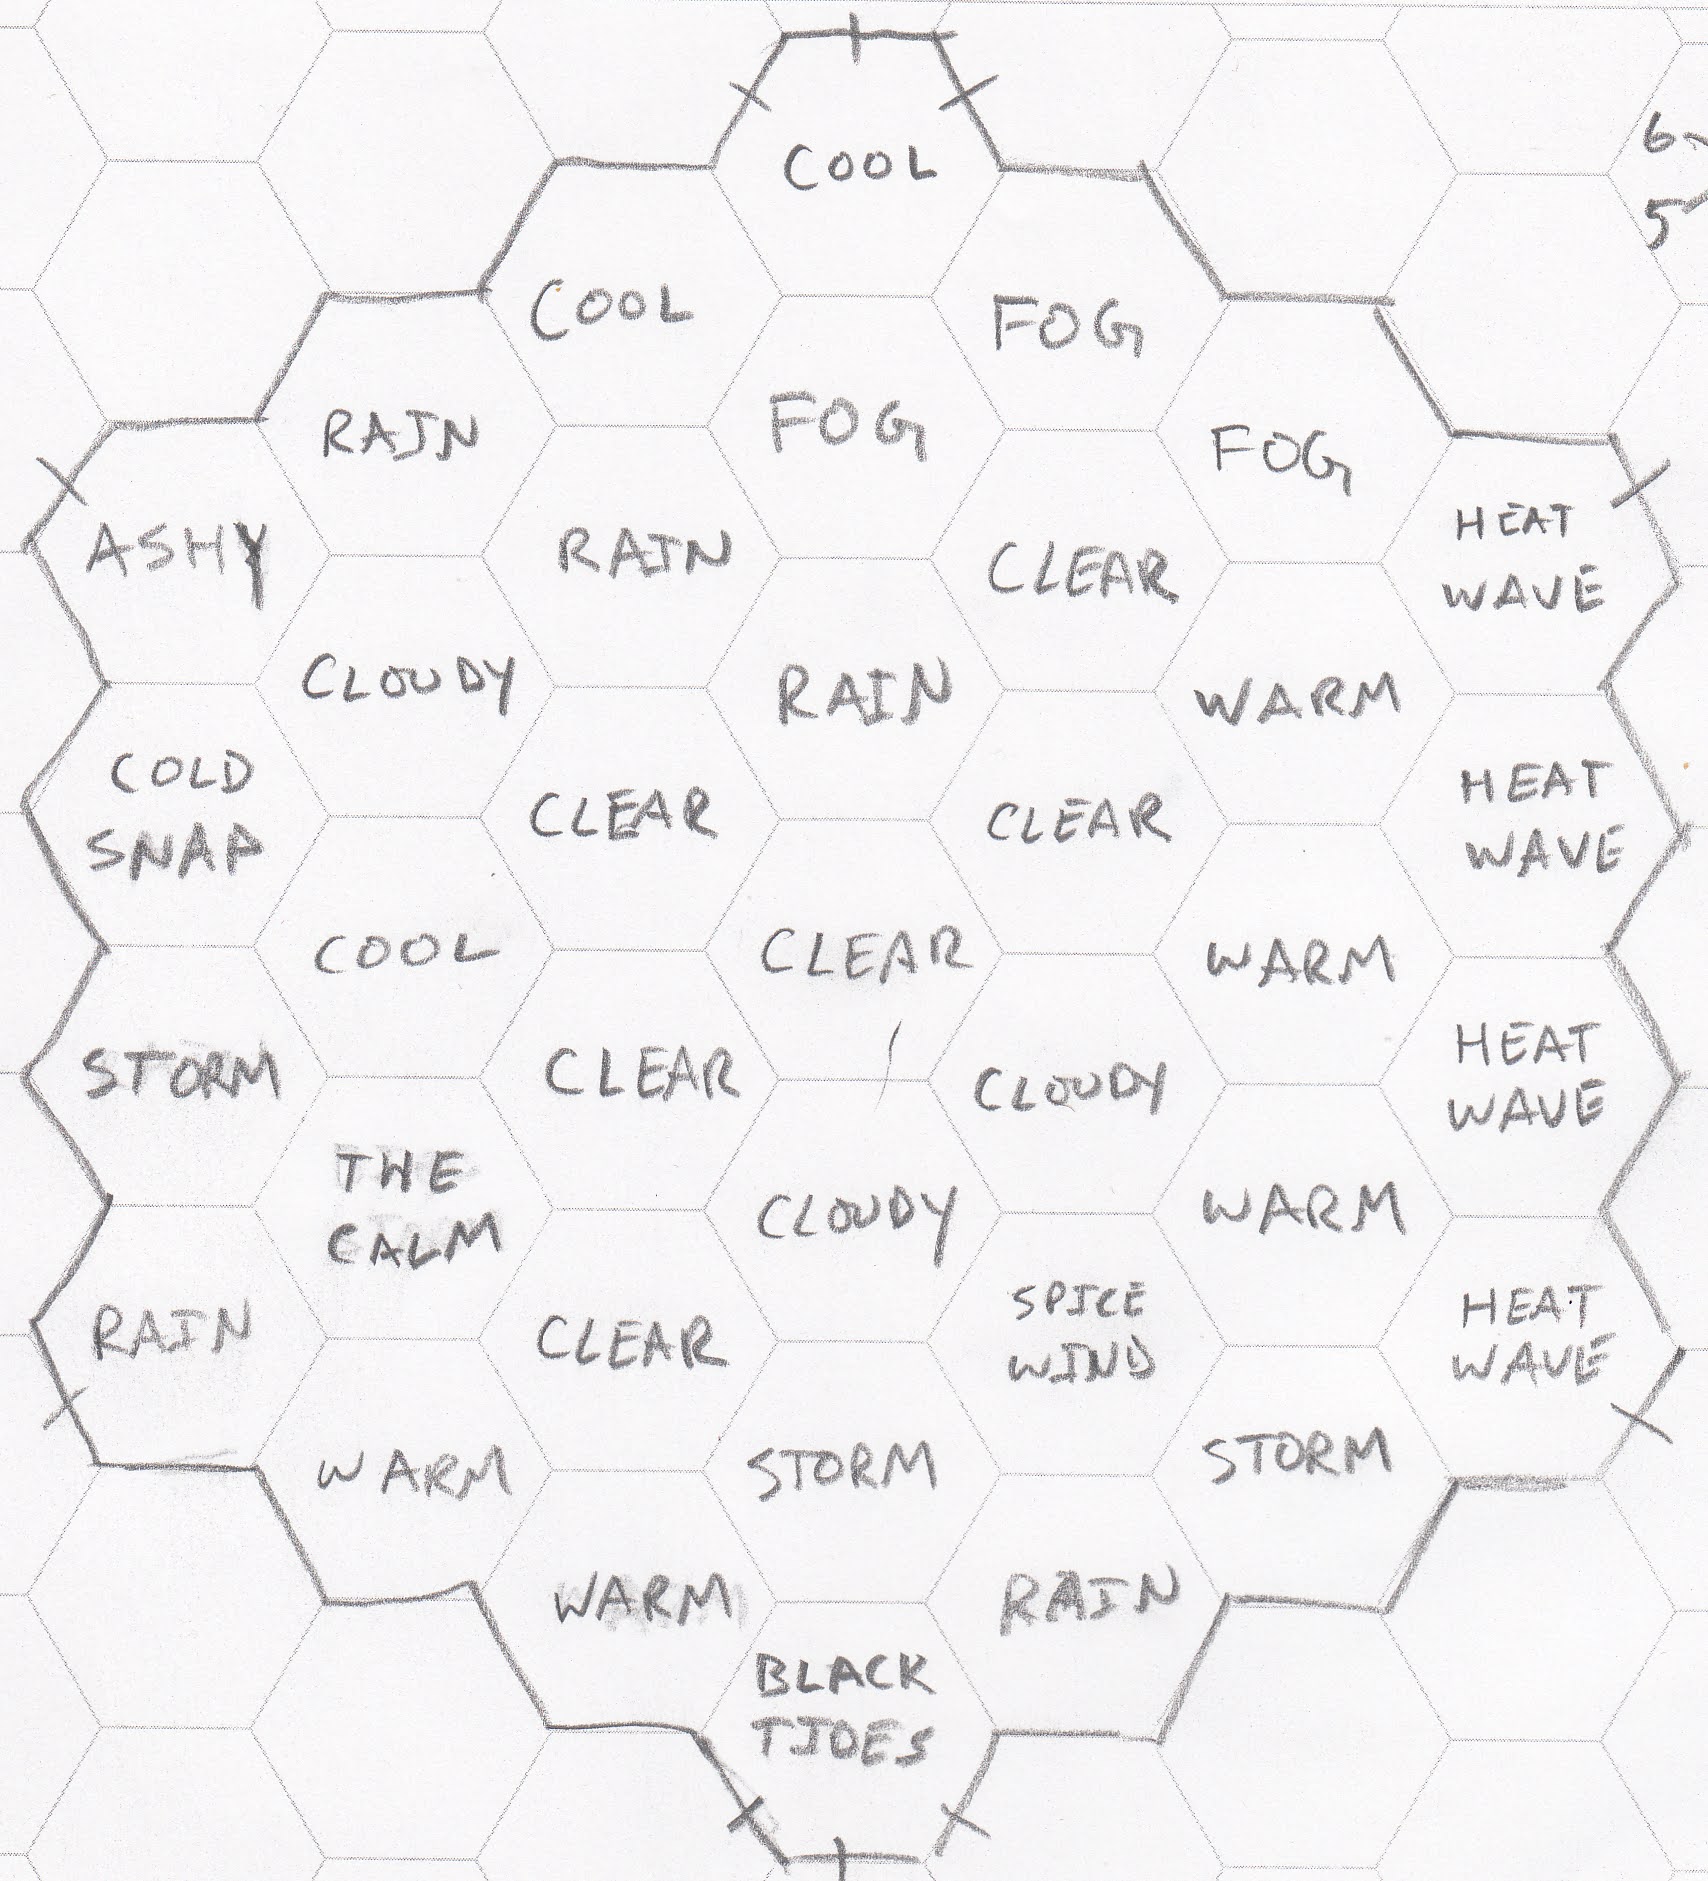 COOL
6
5
COOL
FOG
RAIN
FOG
FOG
ASHY
RAIN
CLEAR
HEAT
WAVE
CLOUDY
RAIN
WARM
COLD
SNAP
CLEAR
CLEAR
HEAT
WAVE
COOL
CLEAR
WARM
STORM
CLEAR
CLOUDY
HEAT
WAVE
THE
CALM
CLOUDY
WARM
RAIN
CLEAR
SPICE
WIND
HEAT
WAVE
WARM
STORM
STORM
WARM
RAIN
BLACK
TIDES